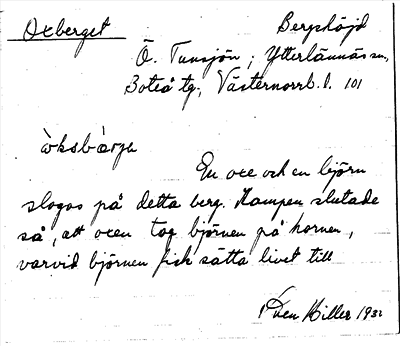 Oxberget
Bergshöjd
Ö. Tunsjön, Ytterlännäs sn,
Boteå tg, Västernorrl. l. 101
òksbærje
En oxe och en björn
slogos på detta berg. Kampen slutade
så, att oxen tog björnen på hornen,
varvid björnen fick sätta livet till
Hiller 1932